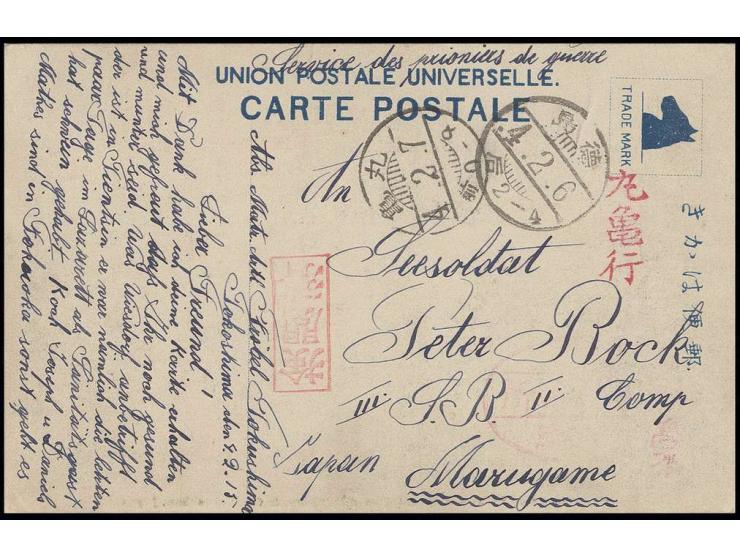 Service des prioniers de guerre
UNION POSTALE UNIVERSELLE.
CARTE POSTALE
TRADE MARK
德島
4.2.6
后2-4
丸龜
4.2.7
きかは便郵
丸亀行
An
Seesoldat
Peter Bock
III. S.B II Comp
Japan Marugame
Tokushima
Tokoshima den 4.2.15.
Lieber Freund!
Mit Dank habe ich deine Karte erhalten
und mich gefreut daß Ihr noch gesund
und munter seid was anbetrifft
der ist in Tientsin er war nämlich die letzten
paar Tage im Lazarett als
hat schwein gehabt. Koch Joseph u Daniel
Mathes sind in sonst geht es